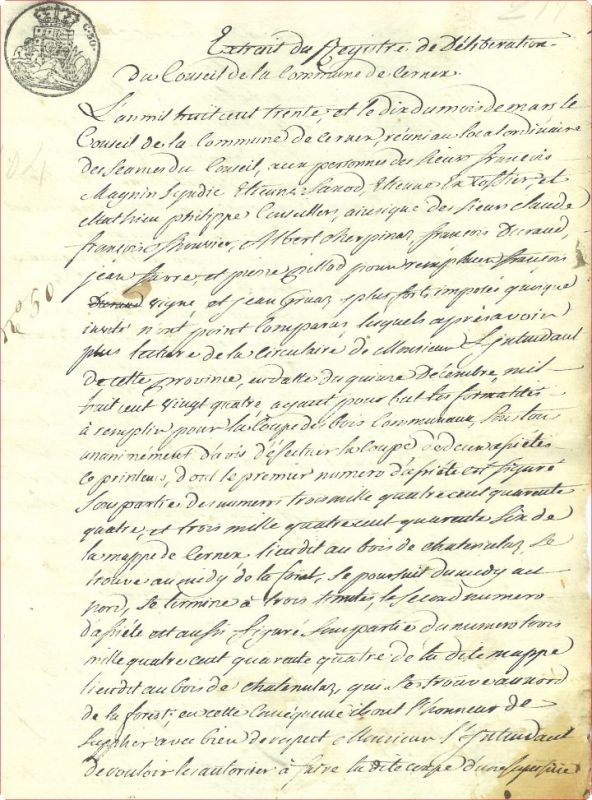 Extrait du Registre de Déliberation
du Conseil de la Commune de Cernex
L'an mil huit cent trente et le dix du mois de mars le
Conseil de la Commune de Cernex, réuni au local ordinaire
des séances du Conseil, aux personnes des sieurs françois
Magnin Syndic Etienne Etienne et
Mathieu philippe Conseillers, ainsique des sieurs claude
françois Bouvier, Albert Cherpinaz, françois Durand,
jean favre, et pierre pour remplacer françois
Durand Vigne et jean Gruaz plus forts imposés quoique
invité n'ont point Comparus, lesquels après avoir
plus lecture de la Circulaire de Monsieur L'jntendant
de cette province, en datte du quinze Décembre, mil
huit cent vingt quatre, ayant pour but les formalités
à remplir pour la Coupe de bois Communaux, Sont tous
unaninement d'avis d'éfectuer la Coupe de deux assiètes
ce printems, dont le premier numero d'assiète est figuré
Sous partie des numeros trois mille quatre cent quarente
quatre, et trois mille quatre cent quarente Six de
la mappe de Cernex lieudit au bois de chatenulaz, Se
trouve au midy de la foret, Se poursuit du midy au
nord, Se termine à trois limites, le Second numero
d'assiète est aussi figuré Sous partie du numero trois
mille quatre cent quarante quatre de la dite mappe
lieudit au bois de chatenulaz, qui Se trouve au nord
de la forest; en cette Conséquence ils ont l'honneur de
Supplier avec bien de respect Monsieur L'Intendant
de vouloir les autoriser à faire la dite coupe d'une Superficie
N° 50
C. 50.